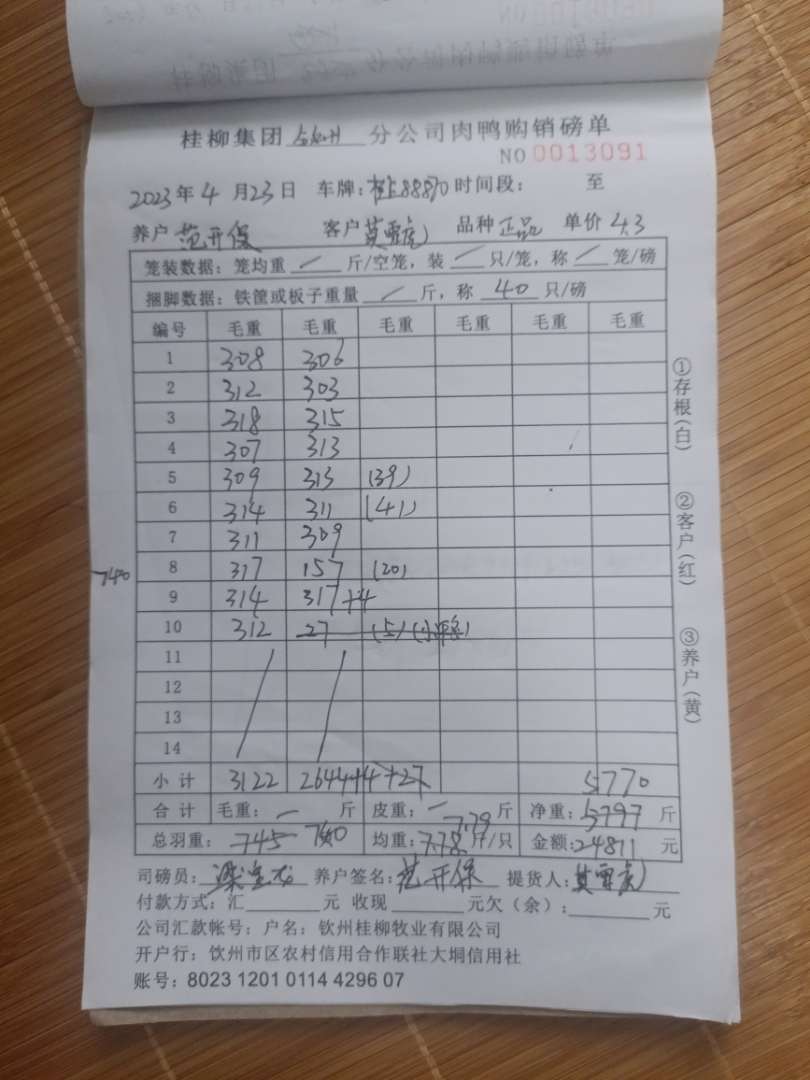 桂柳集团 钦州 分公司肉鸭购销磅单
NO 0013091
2023年4月23日 车牌: 88870 时间段: 至
养户 范开保 客户 莫雪虎 品种 正品 单价 4.3
笼装数据: 笼均重 / 斤/空笼, 装 / 只/笼, 称 / 笼/磅
捆脚数据: 铁筐或板子重量 / 斤, 称 40 只/磅
编号 毛重 毛重 毛重 毛重 毛重 毛重
1 308 306
2 312 303
3 318 315
4 307 313
5 309 313 (39)
6 314 311 (41)
7 311 309
8 317 157 (20)
9 314 317+4
10 312 27 (5) (小鸭)
11
12
13
14
740
小计 3122 2644+4+27 5770
合计 毛重: — 斤 皮重: — 斤 净重: 5797 斤
总羽重: 745 740 均重: 7.78 7.79 斤/只 金额: 24811 元
司磅员: 养户签名: 范开保 提货人: 莫雪虎
付款方式: 汇 元 收现 元欠(余): 元
公司汇款帐号: 户名: 钦州桂柳牧业有限公司
开户行: 饮州市区农村信用合作联社大垌信用社
账号: 8023 1201 0114 4296 07
①存根(白)
②客户(红)
③养户(黄)